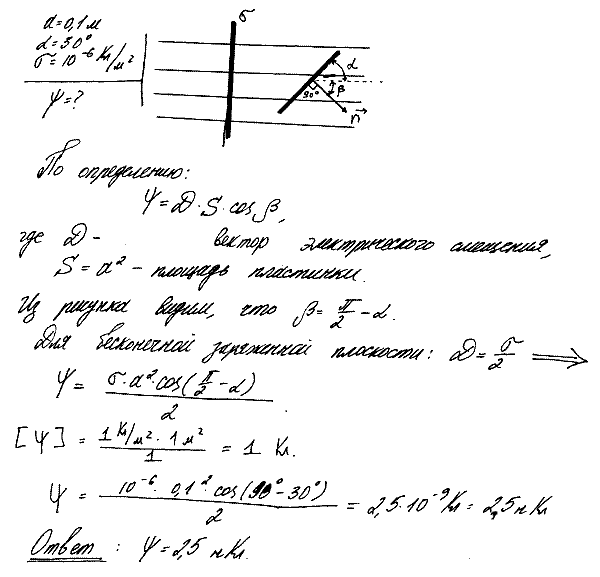 a=0,1 м
α=30°
σ=10⁻⁶ Кл/м²
Ψ=?
σ
α
β
90°
n⃗
По определению:
Ψ=D·S·cos β,
где D - вектор электрического смещения,
S=a² - площадь пластинки.
Из рисунка видим, что β=π/2-α.
Для бесконечной заряженной плоскости: D=σ/2 ⟹
Ψ= σ·a²·cos(π/2-α)/2
[Ψ] = 1 Кл/м²·1 м²/1 = 1 Кл.
Ψ = 10⁻⁶·0,1²·cos(90°-30°)/2 = 2,5·10⁻⁹Кл = 2,5 нКл
Ответ: Ψ=2,5 нКл.